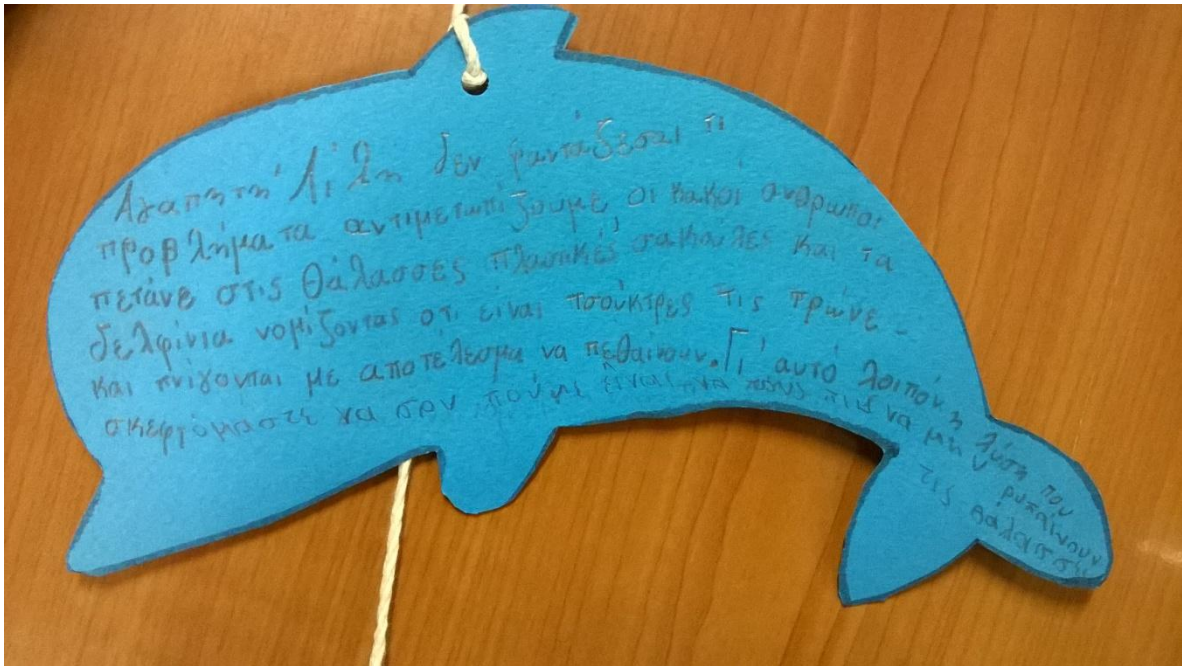 Αγαπητή Λίλη δεν φαντάζεσαι τι
προβλήματα αντιμετωπίζουμε, οι κακοί άνθρωποι
πετάνε στις θάλασσες πλαστικές σακούλες και τα
δελφίνια νομίζοντας οτι είναι τσούκτρες τις τρώνε
και πνίγονται με αποτέλεσμα να πεθαίνουν. Γι' αυτό λοιπόν η λύση που
σκεφτόμαστε να σου πούμε είναι να τους πεις να μην ρυπαίνουν
τις θάλασσες